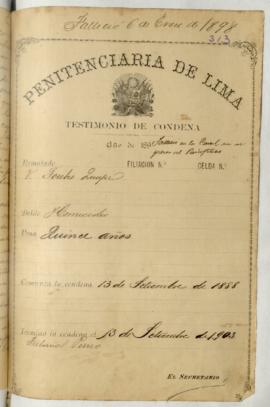 Falleció 6 de Enero de 1898
313
PENITENCIARIA DE LIMA
TESTIMONIO DE CONDENA
Año de 189
Rematado FILIACION N.º CELDA N.º
Delito Homicidio
Pena Quince años
Comienza la condena 13 de Setiembre de 1888
Termina la condena el 13 de Setiembre de 1903
EL SECRETARIO